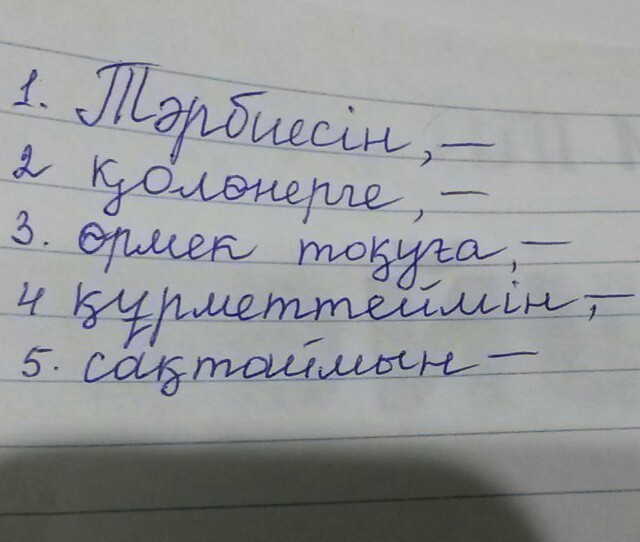 1. Тәрбиесін, —
2 қолөнерге, —
3. өрмек тоқуға, —
4 құрметтеймін, —
5. сақтаймын —